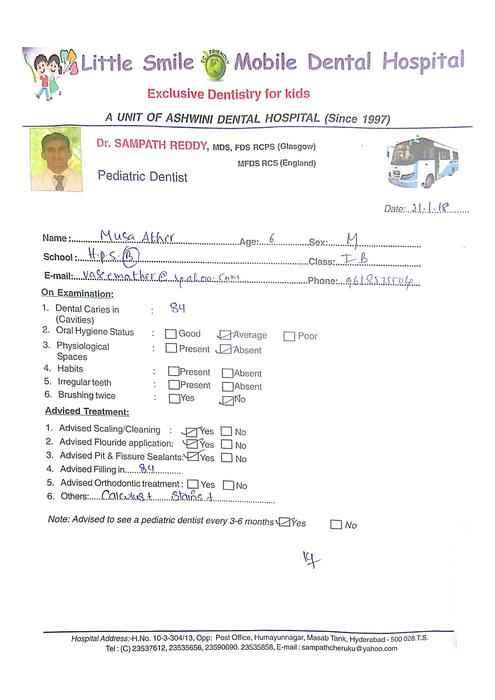 Little Smile ECO FRIENDLY Mobile Dental Hospital
Exclusive Dentistry for kids
A UNIT OF ASHWINI DENTAL HOSPITAL (Since 1997)
Dr. SAMPATH REDDY, MDS, FDS RCPS (Glasgow)
MFDS RCS (England)
Pediatric Dentist
Date: 21.1.18
Name: Musa Ather Age: 6 Sex: M
School: H.P.S (B) Class: I B
E-mail: Phone:
On Examination:
1. Dental Caries in : 84
(Cavities)
2. Oral Hygiene Status : Good Average Poor
3. Physiological : Present Absent
Spaces
4. Habits : Present Absent
5. Irregular teeth : Present Absent
6. Brushing twice : Yes No
Advised Treatment:
1. Advised Scaling/Cleaning : Yes No
2. Advised Flouride application: Yes No
3. Advised Pit & Fissure Sealants: Yes No
4. Advised Filling in 84
5. Advised Orthodontic treatment : Yes No
6. Others: Calculus + Stains +
Note: Advised to see a pediatric dentist every 3-6 months Yes No
Hospital Address:-H.No. 10-3-304/13, Opp: Post Office, Humayunnagar, Masab Tank, Hyderabad - 500 028.T.S.
Tel : (C) 23537612, 23535656, 23590090. 23535858, E-mail : sampathcheruku@yahoo.com